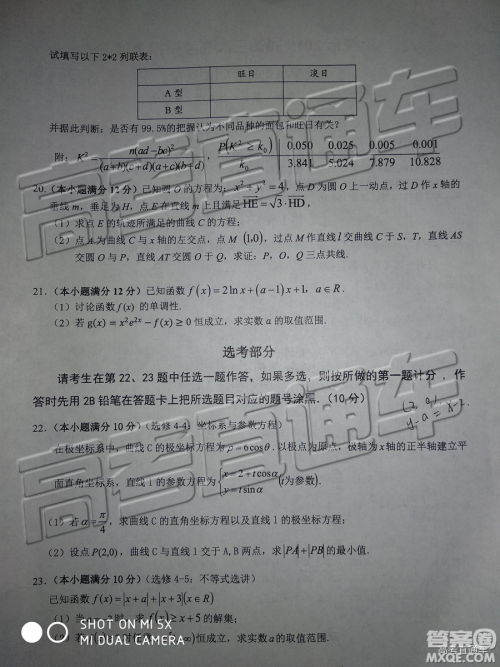 试填写以下 2*2 列联表:
旺日 淡日
A 型
B 型
并据此判断:是否有 99.5%的把握认为不同品种的面包和旺日有关?
附: K² = n(ad−bc)² / (a+b)(c+d)(a+c)(b+d) , P(K² ≥ k₀) 0.050 0.025 0.005 0.001
k₀ 3.841 5.024 7.879 10.828
20. (本小题满分 12 分) 已知圆 O 的方程为: x² + y² = 4, 点 D 为圆 O 上一动点, 过 D 作 x 轴的
垂线 m, 垂足为 H, 点 E 在直线 m 上且满足 HE = √3·HD,
(1) 求点 E 的轨迹所满足的曲线 C 的方程;
(2) 点 A 为曲线 C 与 x 轴的左交点, 点 M (1,0), 过点 M 作直线 l 交曲线 C 于 S, T, 直线 AS
交圆 O 与 P, 直线 AT 交圆 O 于 Q, 求证: P, O, Q 三点共线.
21. (本小题满分 12 分) 已知函数 f(x) = 2ln x + (a−1)x + 1, a ∈ R.
(1) 讨论函数 f(x) 的单调性.
(2) 若 g(x) = x²e²ˣ − f(x) ≥ 0 恒成立, 求实数 a 的取值范围.
选考部分
请考生在第 22、23 题中任选一题作答, 如果多选, 则按所做的第一题计分, 作
答时先用 2B 铅笔在答题卡上把所选题目对应的题号涂黑. (10 分)
22. (本小题满分 10 分) (选修 4-4: 坐标系与参数方程)
在极坐标系中, 曲线 C 的极坐标方程为 ρ = 6cosθ. 以极点为原点, 极轴为 x 轴的正半轴建立平
面直角坐标系, 直线 l 的参数方程为 { x = 2 + t cosα y = t sinα (t为参数).
(1) 若 α = π/4, 求曲线 C 的直角坐标方程以及直线 l 的极坐标方程;
(2) 设点 P(2,0), 曲线 C 与直线 l 交于 A,B 两点, 求 |PA| + |PB| 的最小值.
23. (本小题满分 10 分) (选修 4-5: 不等式选讲)
已知函数 f(x) = |x + a| + |x + 3| (x ∈ R)
(1) 当 时, 求 f(x) ≥ x + 5 的解集;
恒成立, 求实数 a 的取值范围.
SHOT ON MI 5X
MI DUAL CAMERA
高考直通车
答案圈
MXQE.COM